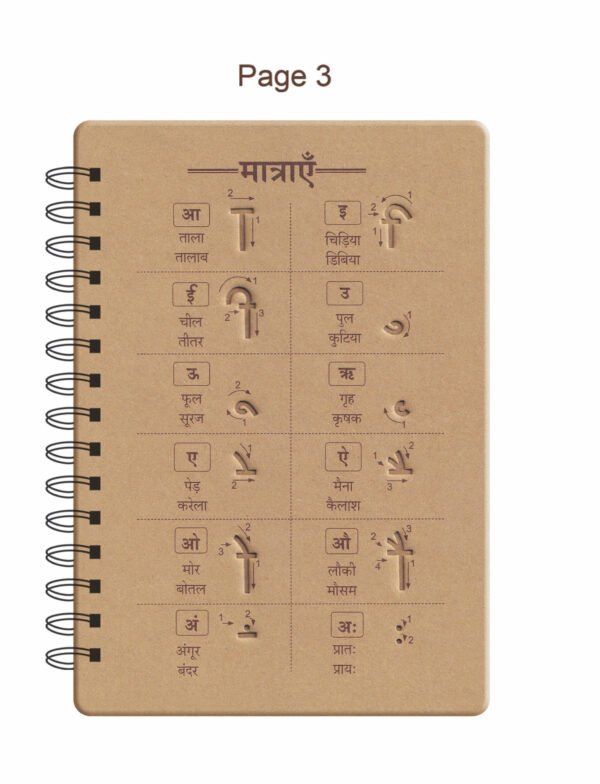 Page 3
मात्राएँ
आ
ताला
तालाब
2
1
इ
चिड़िया
डिबिया
1
2
1
ई
चील
तीतर
1
2
3
उ
पुल
कुटिया
1
ऊ
फूल
सूरज
2
1
ऋ
गृह
कृषक
1
ए
पेड़
करेला
1
2
ऐ
मैना
कैलाश
1
2
3
ओ
मोर
बोतल
2
3
1
औ
लौकी
मौसम
3
2
4
1
अं
अंगूर
बंदर
1
2
अः
प्रातः
प्रायः
1
2